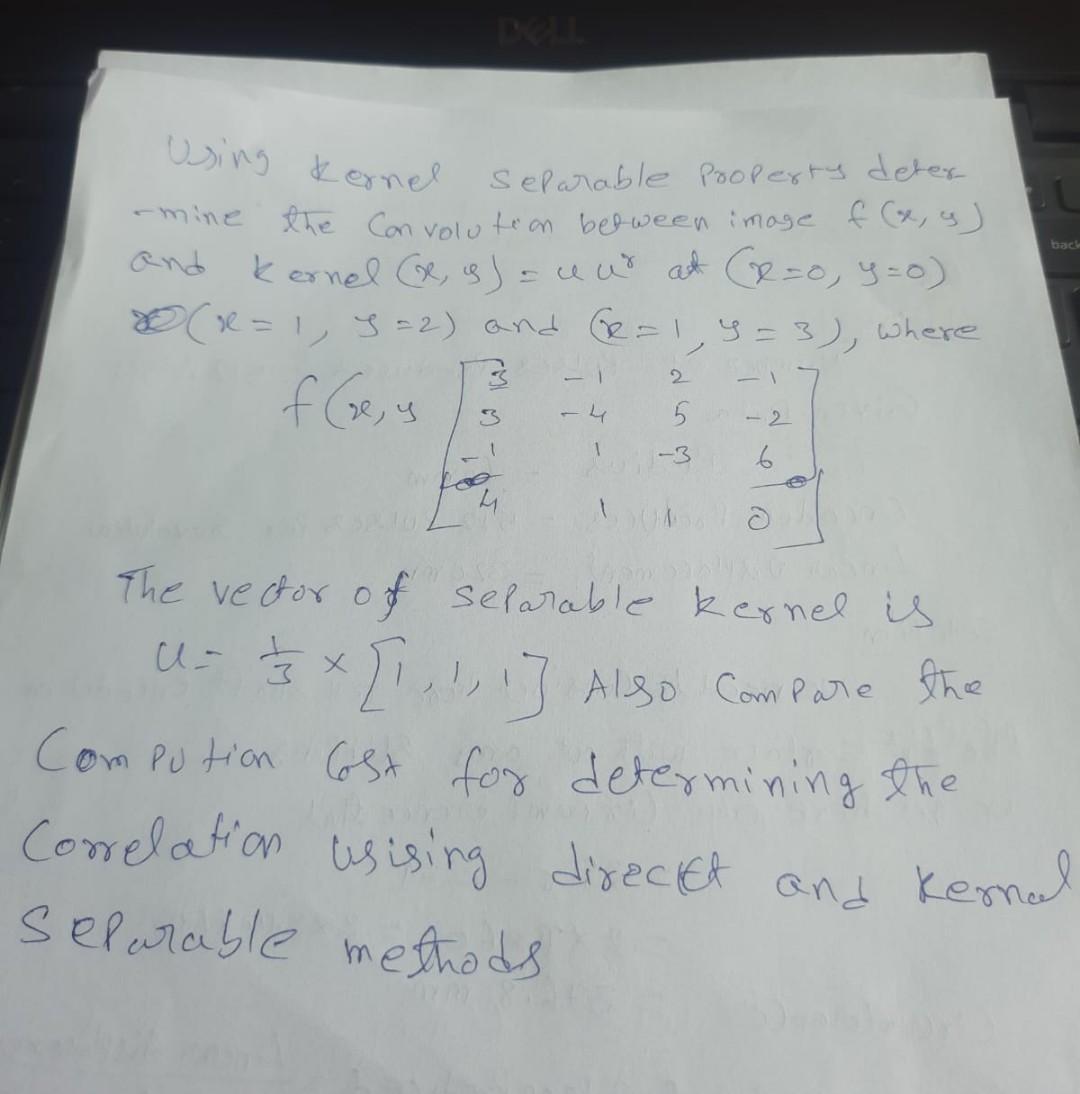 DELL
back
Using kernel separable Property deter
-mine the Convolution between image f(x, y)
and kernel (x, y) = u uᵀ at (x=0, y=0)
(x=1, y=2) and (x=1, y=3), where
f(x, y [ 3 -1 2 -1
3 -4 5 -2
-1 1 -3 6
4 1 1 0 ]
The vector of separable kernel is
u = 1/3 × [1, 1, 1] Also Compare the
Compution Cost for determining the
Correlation usising direct and kernal
Separable methods